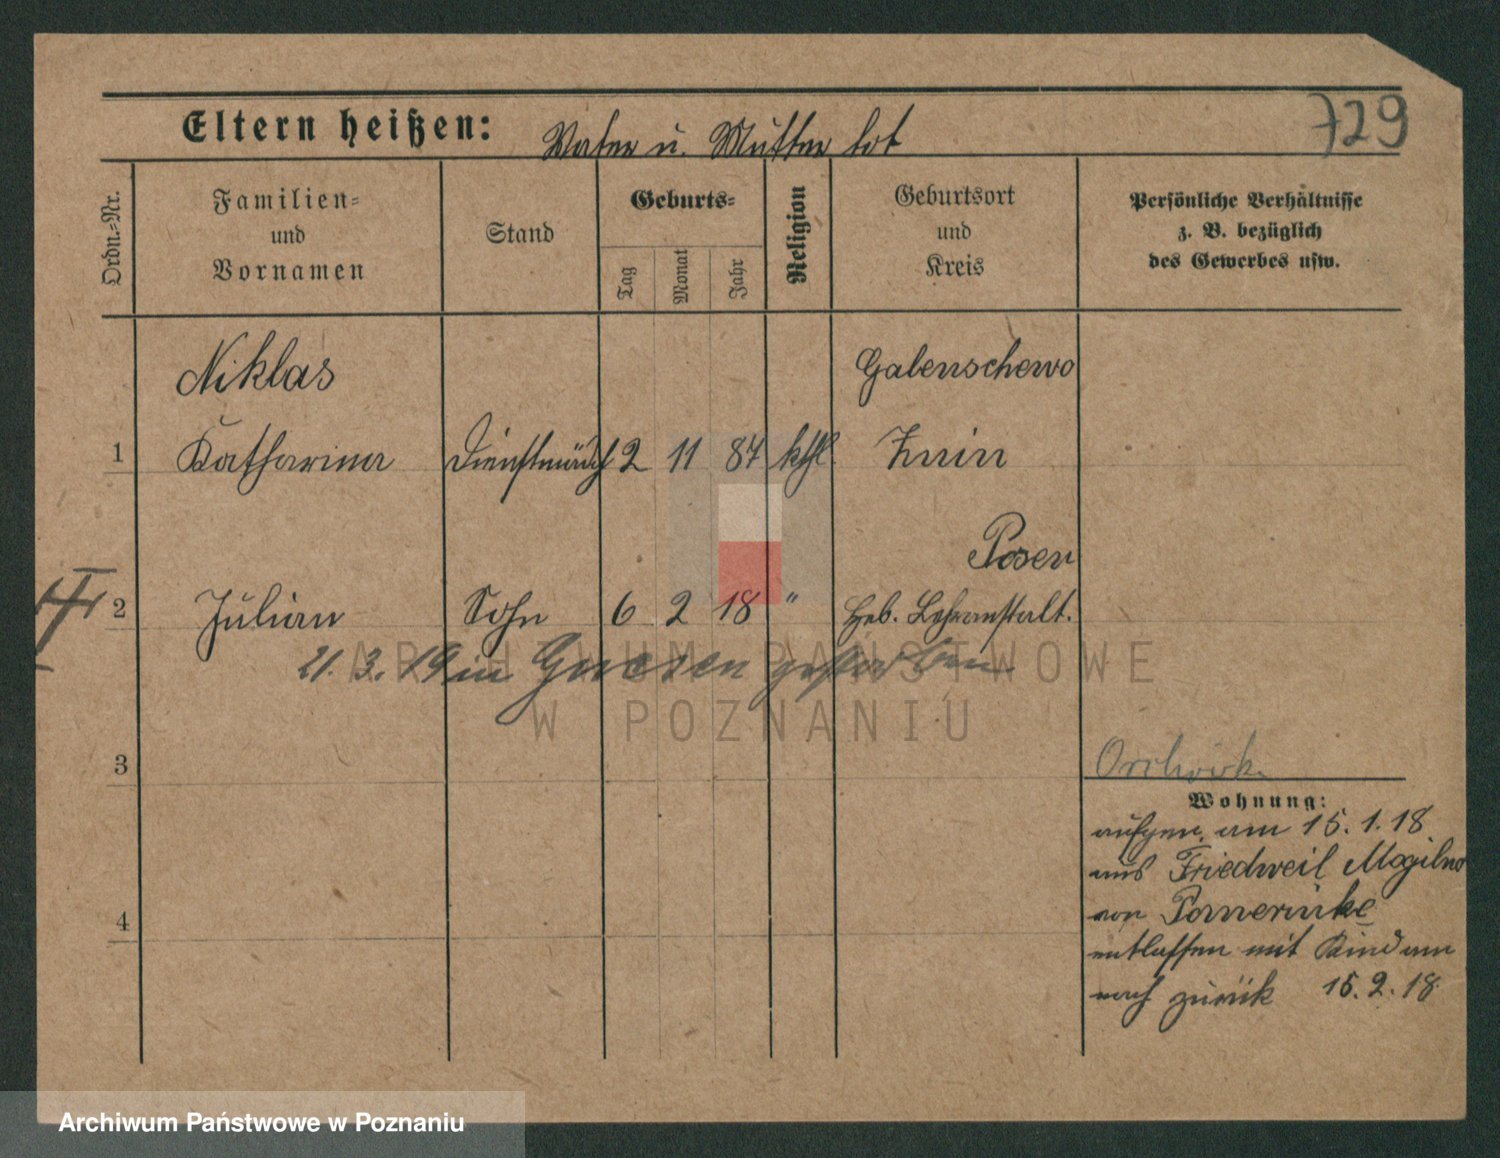 729
Eltern heißen: Vater u. Mutter tot
Ordn.-Nr.
Familien- und Vornamen
Stand
Geburts-
Tag
Monat
Jahr
Religion
Geburtsort und Kreis
Persönliche Verhältnisse
z. B. bezüglich
des Gewerbes usw.
Niklas Galenschewo
1 Katharina Dienstmädch 2 11 87 kthl. Znin
Posen
2 Julian Sohn 6 2 18 " Heb. Lehranstalt.
21.3.19 in Gnesen gestorben
3
4
Wohnung:
aufgen. am 15.1.18
aus Friedweil Mogilno
von Pomerinke
entlassen mit Kind am
nach zurük 15.2.18.
ARCHIWUM PAŃSTWOWE
W POZNANIU
Archiwum Państwowe w Poznaniu